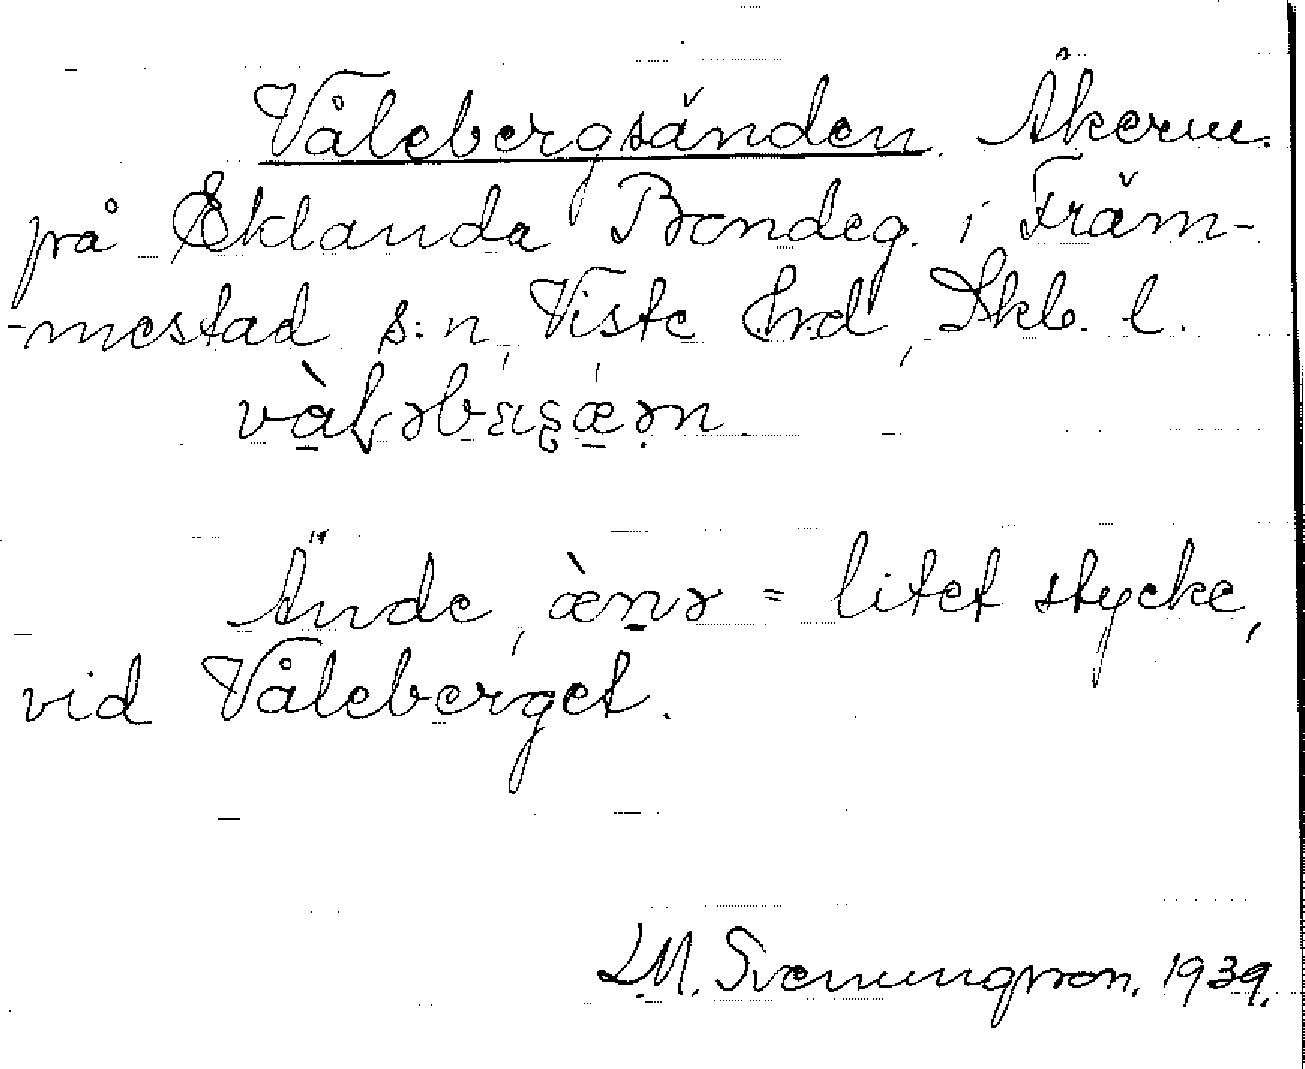 Vålebergsänden. Åkerm.
på Eklanda Bondeg. i Främ-
-mestad s:n, Viste hrd, Skb. l.
Ände, = litet stycke,
vid Våleberget.
L.M. Svenungsson. 1939.